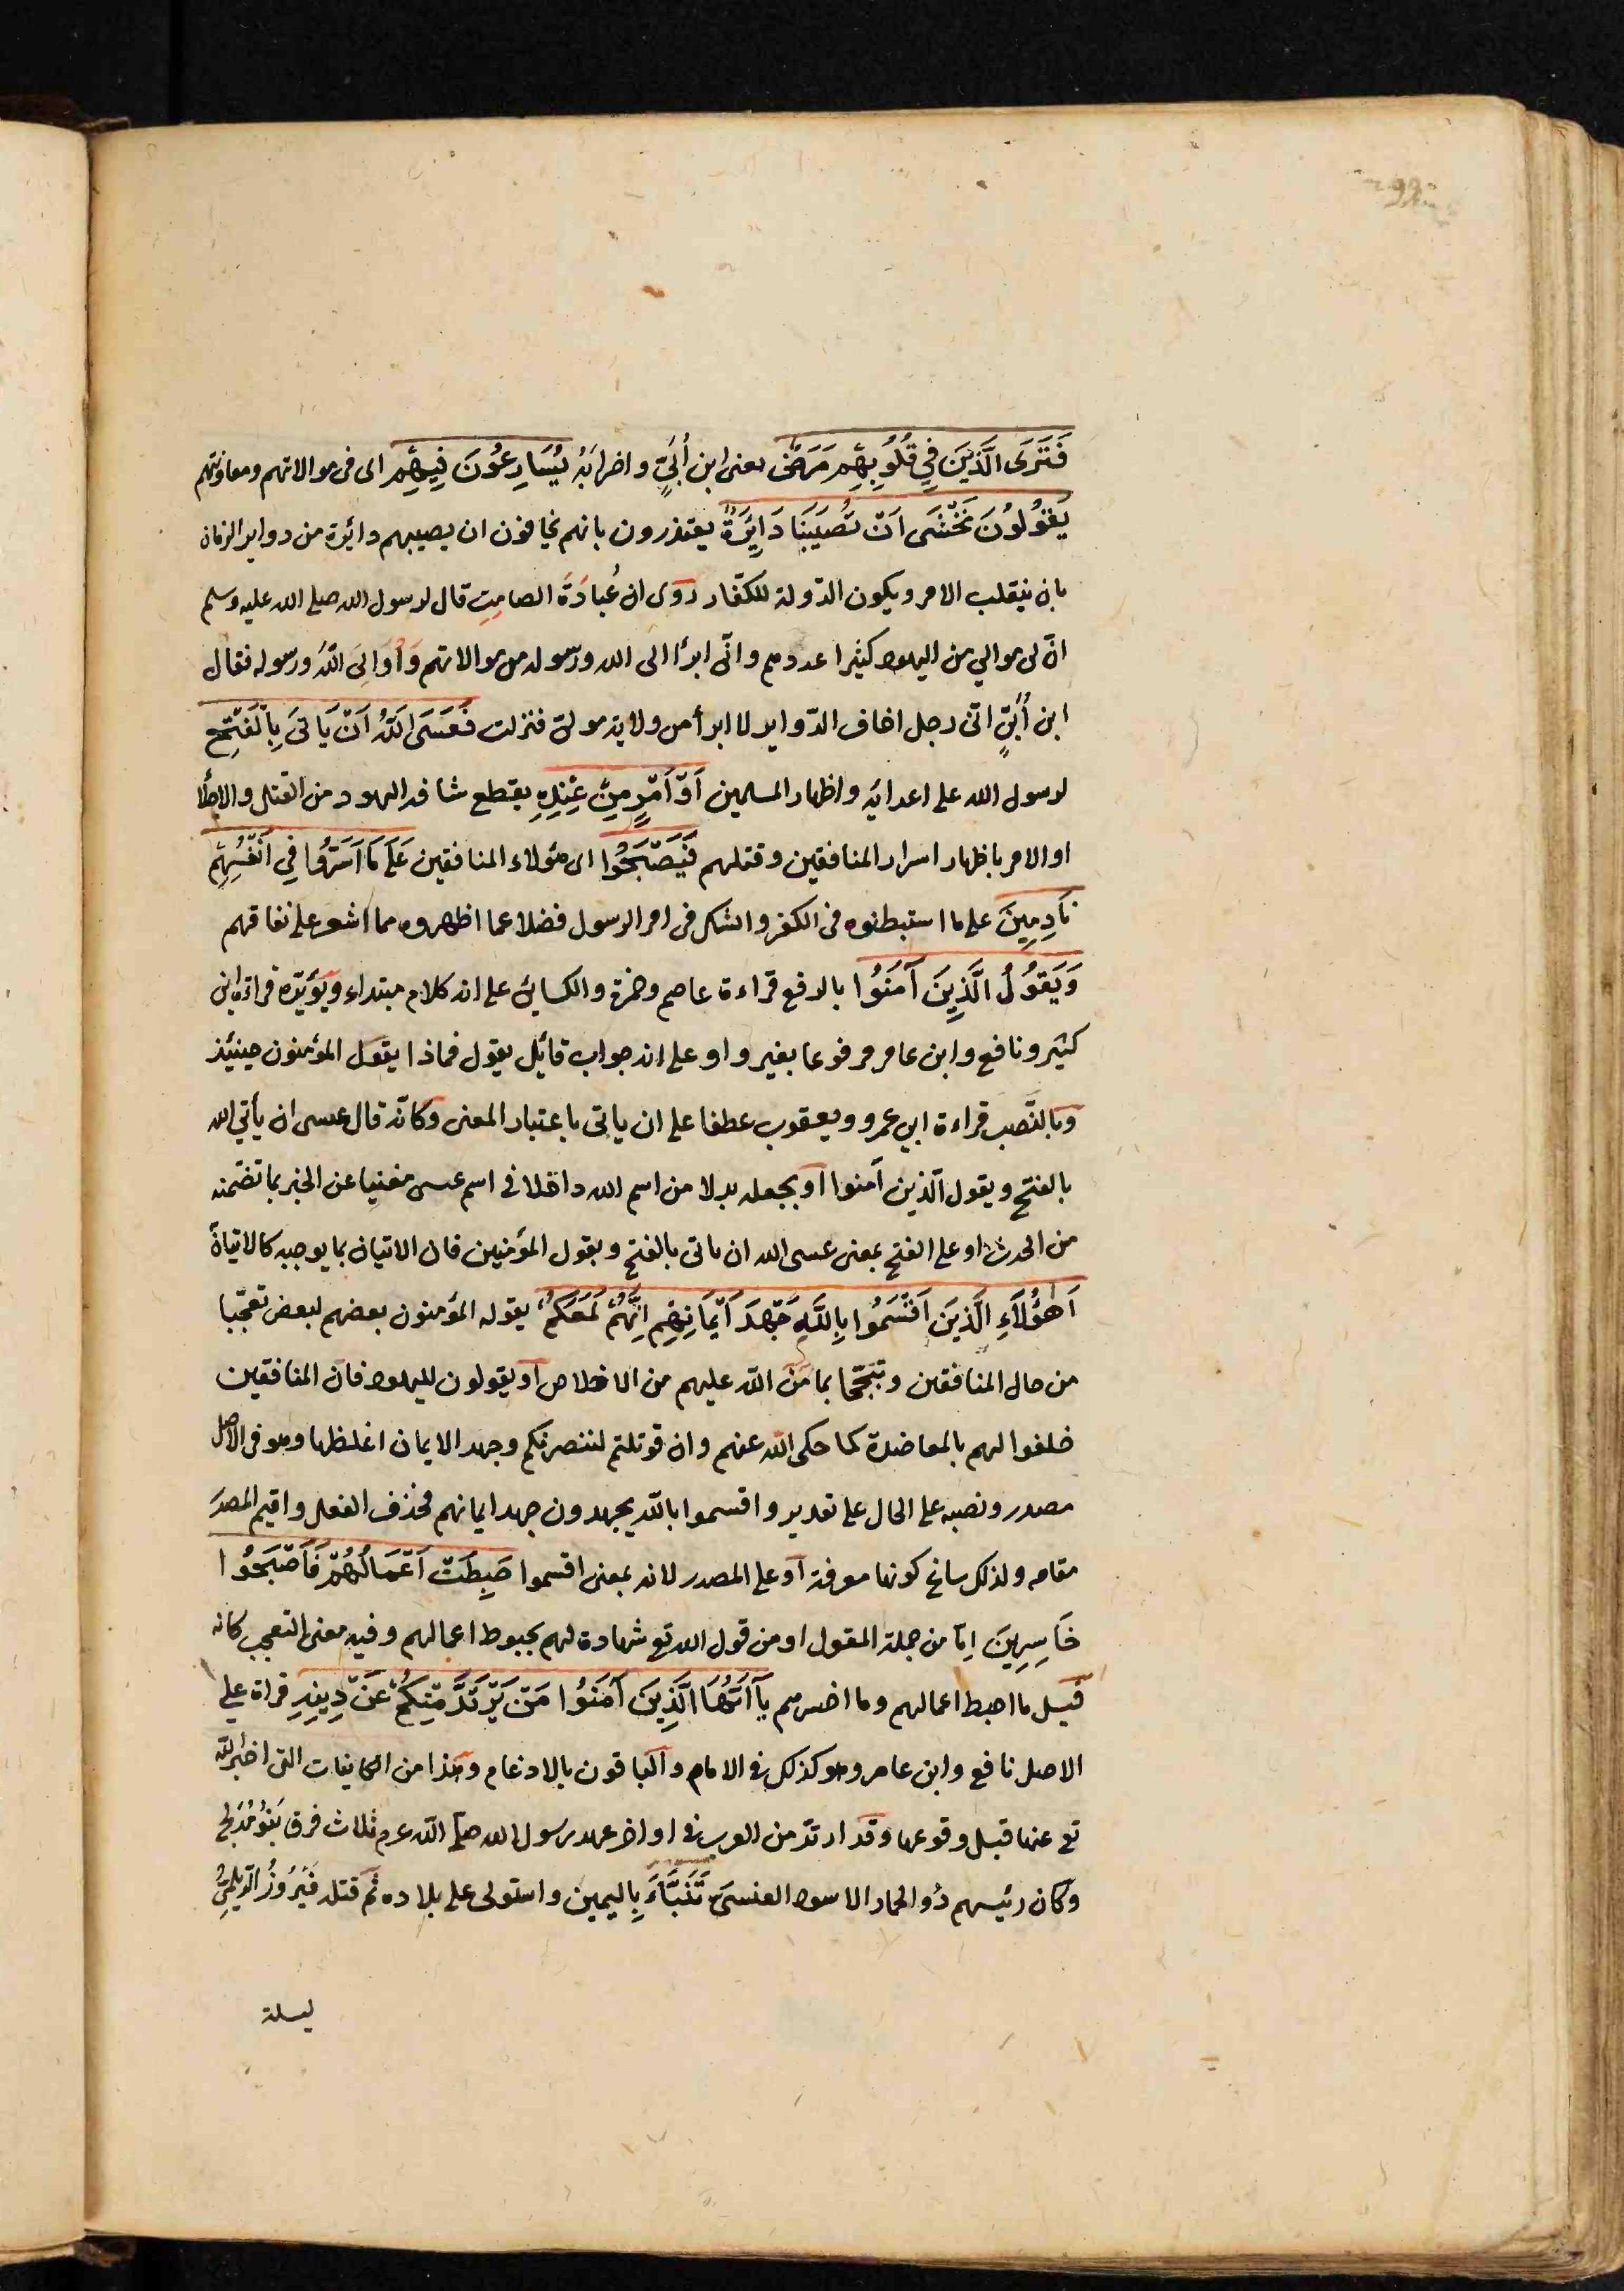 فَتَرَى الَّذِينَ فِي قُلُوبِهِمْ مَرَضٌ يعنى ابن أُبَيٍّ واضرابَهُ يُسَارِعُونَ فِيهِمْ اى فى موالاتهم ومعاونتهم
يَقُولُونَ نَخْشَى اَنْ تُصِيبَنَا دَائِرَةٌ يعتذرون بانهم يخافون ان يصيبهم دائرة من دواير الزمان
بان ينقلب الامر ويكون الدّولة للكفّار روى ان عُبادَةَ الصامِتِ قال لرسول الله صلى الله عليه وسلم
انّ لى موالي من اليهود كثيرا عددهم وانّى ابرأ الى الله ورسوله من موالاتهم وَأُوَالِىَ اللهَ ورسوله فقال
ابن أُبَيٍّ انّى رجل اخاف الدّواير لا ابرأ من ولاية موالىّ فنزلت فَعَسَى اللَّهُ اَنْ يَاتِىَ بِالْفَتْحِ
لرسول الله على اعدائه واظهار المسلمين اَوْ اَمْرٍ مِنْ عِنْدِهِ يقطع شافة اليهود من القتل والاجلا
او الامر باظهار اسرار المنافقين وقتلهم فَيُصْبِحُوا اى هؤلاء المنافقين عَلَى مَا اَسَرُّوا فِي اَنْفُسِهِمْ
نَادِمِينَ على ما استبطنوه فى الكفر والشك فى امر الرسول فضلا عما اظهروه مما اشعر على نفاقهم
وَيَقُولُ الَّذِينَ آمَنُوا بالرفع قراءة عاصم وحمزة والكسائى على انه كلام مبتداء ويؤيّده قراءة ابن
كثير ونافع وابن عامر مرفوعا بغير واو على انه جواب قائل يقول فماذا يقول المؤمنون حينئذ
وبالنّصب قراءة ابى عمرو ويعقوب عطفا على ان ياتى باعتبار المعنى وكانّه قال عسى ان يأتي الله
بالفتح ويقول الّذين آمنوا او يجعله بدلا من اسم الله داخلا فى اسم عسى مغنيا عن الخبر بما تضمّنه
من الحدث او على الفتح بمعنى عسى الله ان ياتى بالفتح وبقول المؤمنين فان الاتيان بما يوجبه كالاتيان
اَهٰؤُلَاءِ الَّذِينَ اَقْسَمُوا بِاللَّهِ جَهْدَ اَيْمَانِهِمْ اِنَّهُمْ لَمَعَكُمْ يقوله المؤمنون بعضهم لبعض تعجّبا
من حال المنافقين وتبجّحا بما مَنّ الله عليهم من الاخلاص او يقولون لليهود فانّ المنافقين
حلفوا لهم بالمعاضدة كما حكى الله عنهم وان قوتلتم لننصرنكم وجهد الايمان اغلظها وهو فى الاصل
مصدر ونصبه على الحال على تقدير واقسموا بالله يجهدون جهد ايمانهم فحذف الفعل واقيم المصدر
مقامه ولذلك ساغ كونها معرفة او على المصدر لانه بمعنى اقسموا حَبِطَتْ اَعْمَالُهُمْ فَاَصْبَحُوا
خَاسِرِينَ اِمّا من جملة المقول او من قول الله تع شهادة لهم بحبوط اعمالهم وفيه معنى التعجب كانه
قيل ما احبط اعمالهم وما اخسرهم يَآ اَيُّهَا الَّذِينَ آمَنُوا مَنْ يَرْتَدَّ مِنْكُمْ عَنْ دِينِهِ قراة على
الاصل نافع وابن عامر وهو كذلك فى الامام والباقون بالادغام وهذا من الكاينات التى اخبر الله
تع عنها قبل وقوعها وقد ارتدّ من العرب فى اواخر عهد رسول الله صلى الله عم ثلاث فرق بَنُو مُدْلِج
وكان رئيسهم ذُو الحمار الاسود العنسىّ تَنَبَّاءَ بِاليمين واستولى على بلاده ثم قتله فَيْرُوزُ الدّيلمىُّ
ليلة